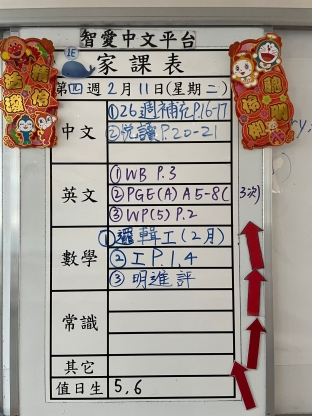 智愛中文平台
1E
家課表
第四週2月11日(星期二)
中文
①26週補充P.16-17
②悅讀P.20-21
英文
①WB P.3
②PGE(A) A5-8(3次)
③WP(5) P.2
數學
①邏輯工(2月)
②工P.1,4
③明進評
常識
其它
值日生 5,6